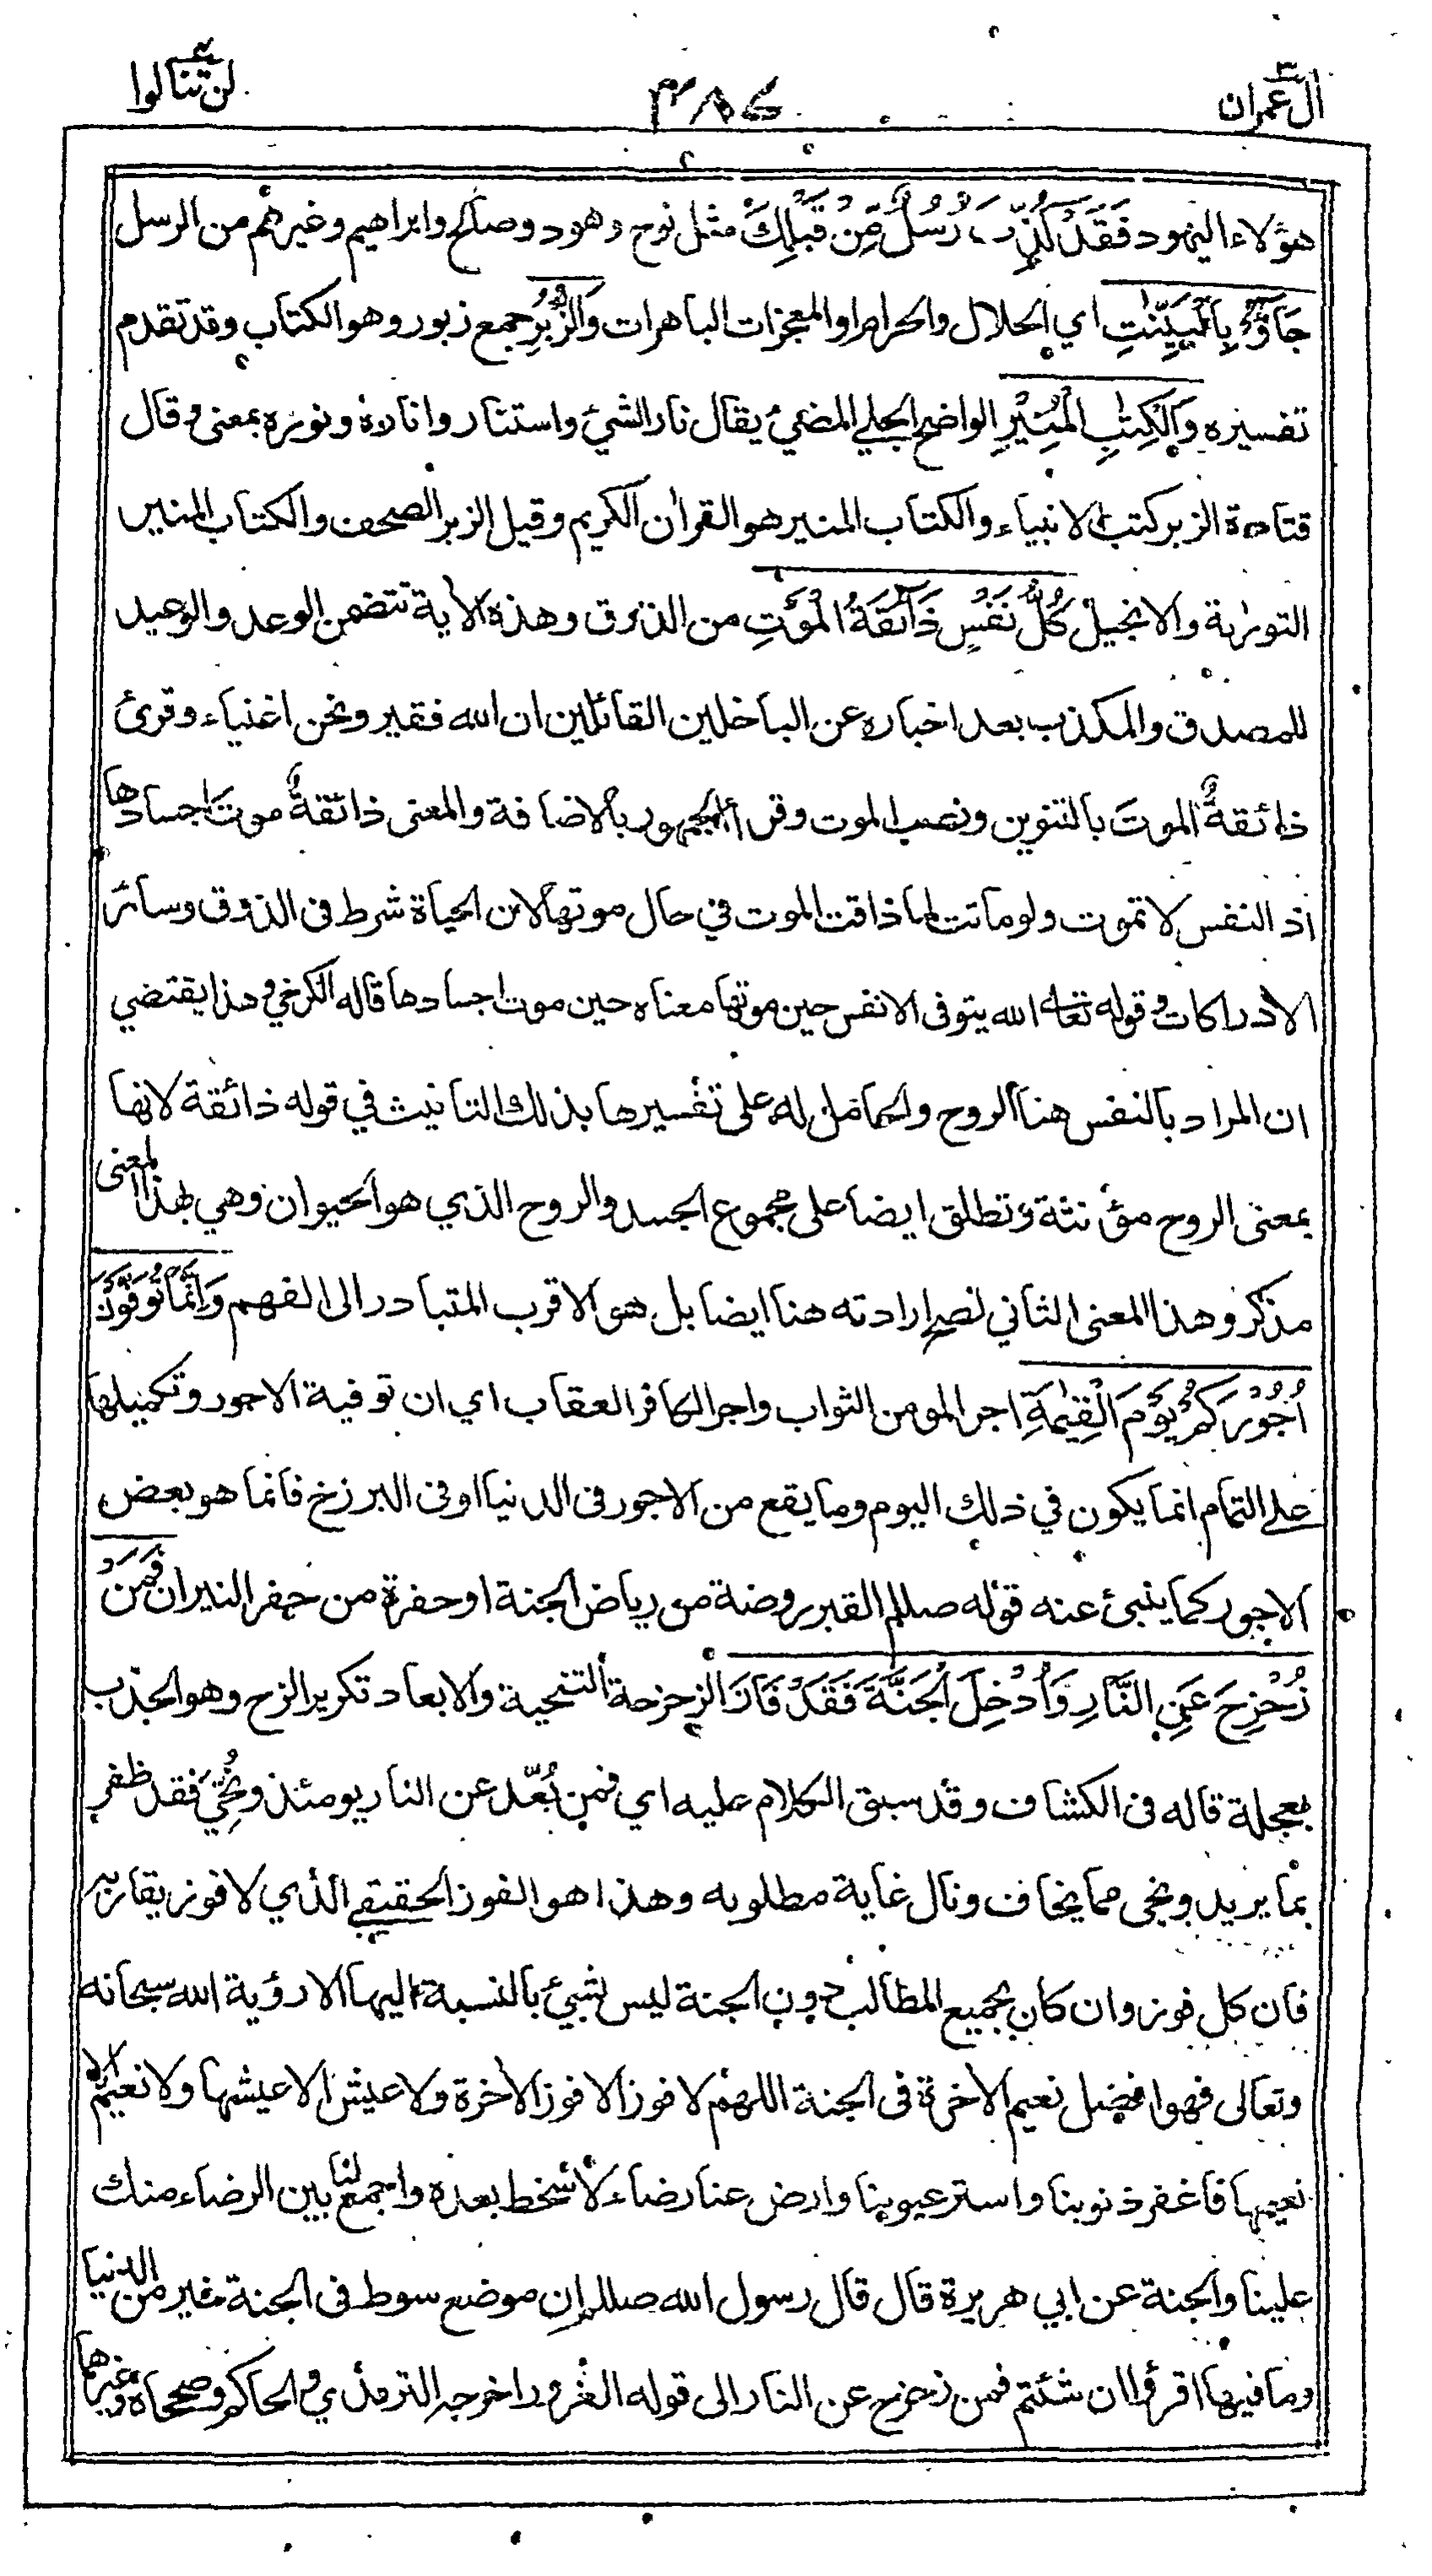 آل عمران
٣٨٧
لن تنالوا
هؤلاء اليهود فَقَدْ كُذِّبَ رُسُلٌ مِّنْ قَبْلِكَ مثل نوح وهود وصالح وابراهيم وغيرهم من الرسل
جَاؤُ بِالْبَيِّنٰتِ اي الحلال والحرام او المعجزات الباهرات وَالزُّبُرِ جمع زبور وهو الكتاب وقد تقدم
تفسيره وَالْكِتٰبِ الْمُنِيْرِ الواضح الجلي المضيئ يقال نار الشيئ واستنار واناره ونوره بمعنى وقال
قتادة الزبر كتب الانبياء والكتاب المنير هو القرآن الكريم وقيل الزبر الصحف والكتاب المنير
التورٰية والانجيل كُلُّ نَفْسٍ ذَآئِقَةُ الْمَوْتِ من الذوق وهذه الآية تتضمن الوعد والوعيد
للمصدق والمكذب بعد اخباره عن الباخلين القائلين ان الله فقير ونحن اغنياء وقرئ
ذائقةٌ الموتَ بالتنوين ونصب الموت وقرأ الجمهور بالاضافة والمعنى ذائقةٌ موتَ اجسادها
اذ النفس لا تموت ولو ماتت لما ذاقت الموت في حال موتها لان الحياة شرط فى الذوق وسائر
الادراكات وقوله تعالى الله يتوفى الانفس حين موتها معناه حين موت اجسادها قاله الكرخي وهذا يقتضي
ان المراد بالنفس هنا الروح والحامل له على تفسيرها بذلك التانيث في قوله ذائقة لانها
بمعنى الروح مؤنثة وتطلق ايضا على مجموع الجسد والروح الذي هو الحيوان وهي بهذا المعنى
مذكر وهذا المعنى الثاني تصح ارادته هنا ايضا بل هو الاقرب المتبادر الى الفهم وَاِنَّمَا تُوَفَّوْنَ
اُجُوْرَكُمْ يَوْمَ الْقِيٰمَةِ اجر المومن الثواب واجر الكافر العقاب اي ان توفية الاجور وتكميلها
على التمام انما يكون في ذلك اليوم وما يقع من الاجور فى الدنيا او فى البرزخ فانما هو بعض
الاجور كما ينبئ عنه قوله صللم القبر روضة من رياض الجنة او حفرة من حفر النيران فَمَنْ
زُحْزِحَ عَنِ النَّارِ وَاُدْخِلَ الْجَنَّةَ فَقَدْ فَازَ الزحزحة التنحية والابعاد تكرير الزح وهو الجذب
بعجلة قاله فى الكشاف وقد سبق الكلام عليه اي فمن بُعّد عن النار يومئذ ونُجِّيَ فقد ظفر
بما يريد ونجى مما يخاف ونال غاية مطلوبه وهذا هو الفوز الحقيقي الذي لا فوز يقاربه
فان كل فوز وان كان بجميع المطالب دون الجنة ليس بشيئ بالنسبة اليها الا رؤية الله سبحانه
وتعالى فهو افضل نعيم الآخرة فى الجنة اللهم لا فوز الا فوز الآخرة ولا عيش الا عيشها ولا نعيم الا
نعيمها فاغفر ذنوبنا واستر عيوبنا وارض عنا رضاء لا سخط بعده واجمع لنا بين الرضاء منك
علينا والجنة عن ابي هريرة قال قال رسول الله صللم ان موضع سوط فى الجنة خير من الدنيا
وما فيها اقرؤا ان شئتم فمن زحزح عن النار الى قوله الغرور اخرجه الترمذي والحاكم وصححاه وغيرهما